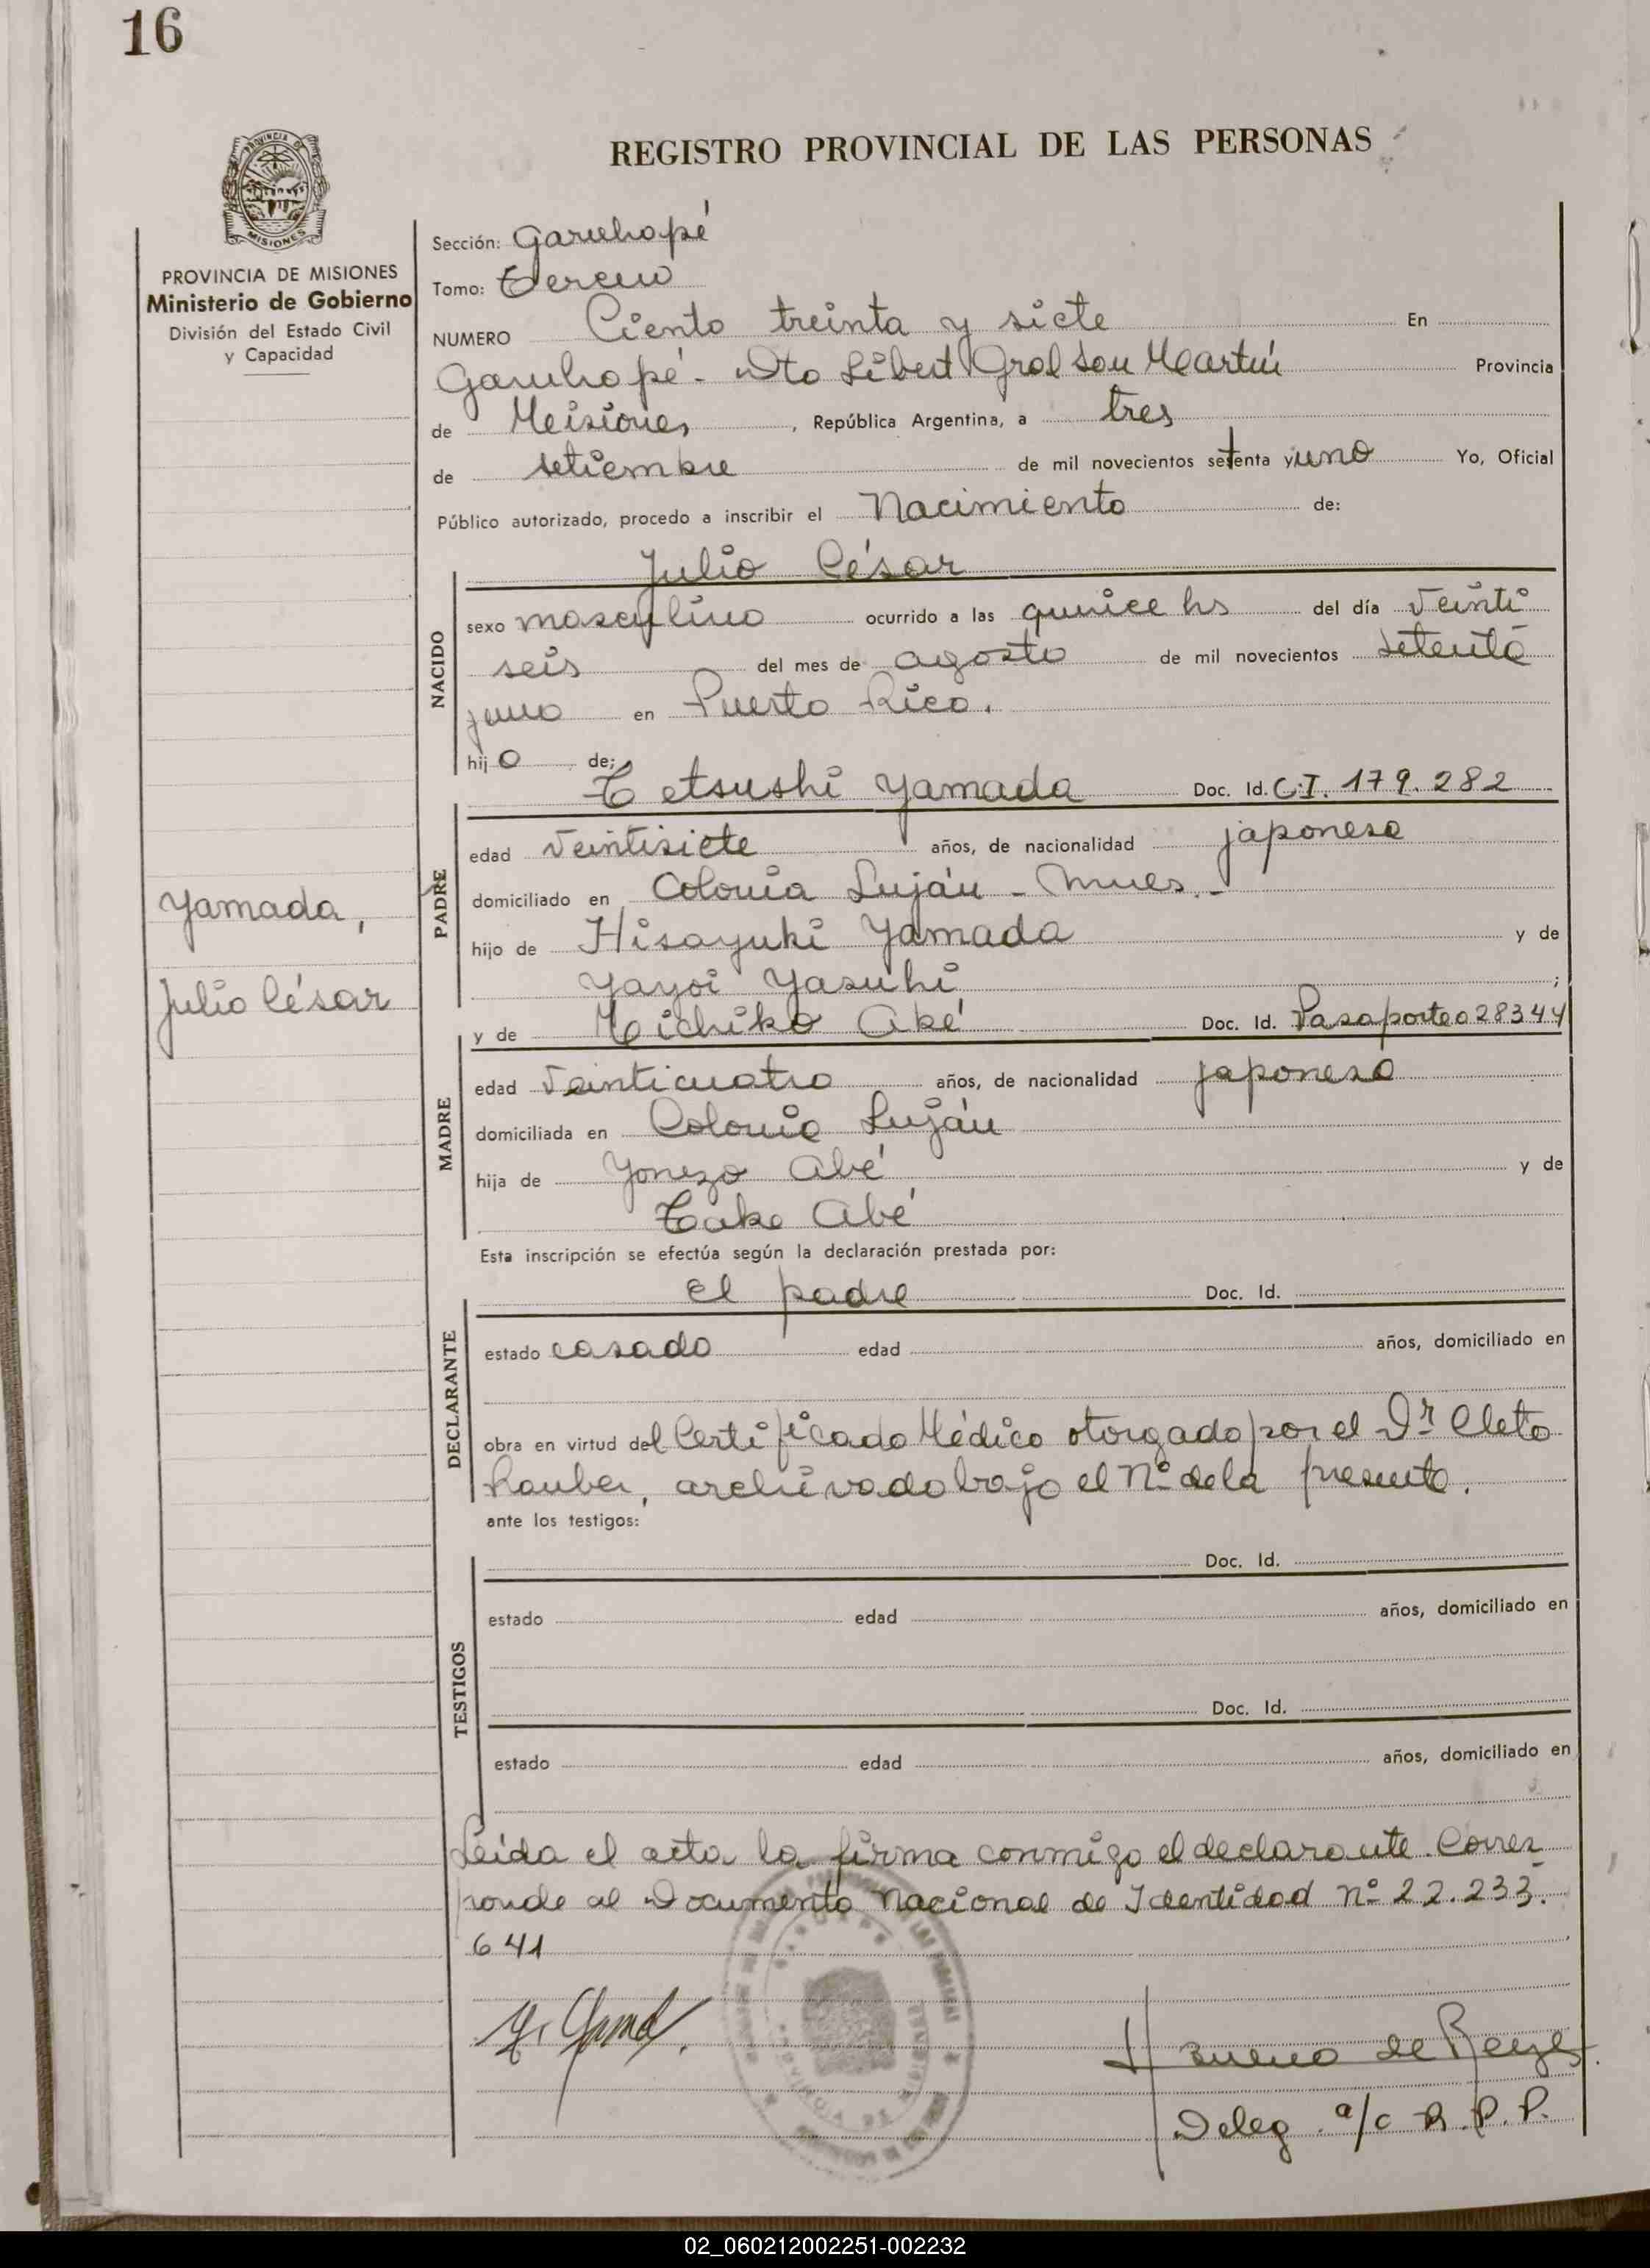 16
REGISTRO PROVINCIAL DE LAS PERSONAS
PROVINCIA DE MISIONES
Ministerio de Gobierno
División del Estado Civil
y Capacidad
Sección: Garuhapé
Tomo: Tercero
NUMERO Ciento treinta y siete En
Garuhapé - Dto Libert Gral San Martín Provincia
de Misiones, República Argentina, a tres
de setiembre de mil novecientos setenta y uno Yo, Oficial
Público autorizado, procedo a inscribir el Nacimiento de:
Julio César
NACIDO
sexo masculino ocurrido a las quince hs del día veinti
seis del mes de agosto de mil novecientos setenta
y uno en Puerto Rico.
hijo de;
Tetsushi Yamada Doc. Id. C.I. 179.282
PADRE
edad veintisiete años, de nacionalidad japonesa
domiciliado en Colonia Luján - Mnes.-
hijo de Hisayuki Yamada y de
Yayoi Yasuhi ;
y de Michiko Abé Doc. Id. Pasaporte 028344
MADRE
edad veinticuatro años, de nacionalidad japonesa
domiciliada en Colonia Luján
hija de Yonezo Abé y de
Take Abé
Yamada,
Julio César
Esta inscripción se efectúa según la declaración prestada por:
el padre Doc. Id.
DECLARANTE
estado casado edad años, domiciliado en
obra en virtud del Certificado Médico otorgado por el Dr Cleto
Rauber, archivado bajo el Nº de la presente.
ante los testigos:
Doc. Id.
TESTIGOS
estado edad años, domiciliado en
Doc. Id.
estado edad años, domiciliado en
Leída el acta la firma conmigo el declarante. Corres
ponde al Documento Nacional de Identidad nº 22.233.
641
H Bueno de Reyes
Deleg. a/c R.P.P.
02_060212002251-002232